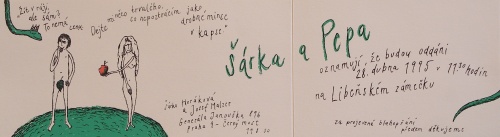 "Žít v ráji,
ale sám?
To nemá cenu."
Dejte mi něco trvalého,
co nepostrácím jako
drobné mince
v kapse
Šárka a Pepa
oznamují, že budou oddáni
28. dubna 1995 v 11.30 hodin
na Libeňském zámečku
Jana Horáková
a Josef Malzer
Generála Janouška 896
Praha 9 - Černý most
198 00
za projevená blahopřání
předem děkujeme